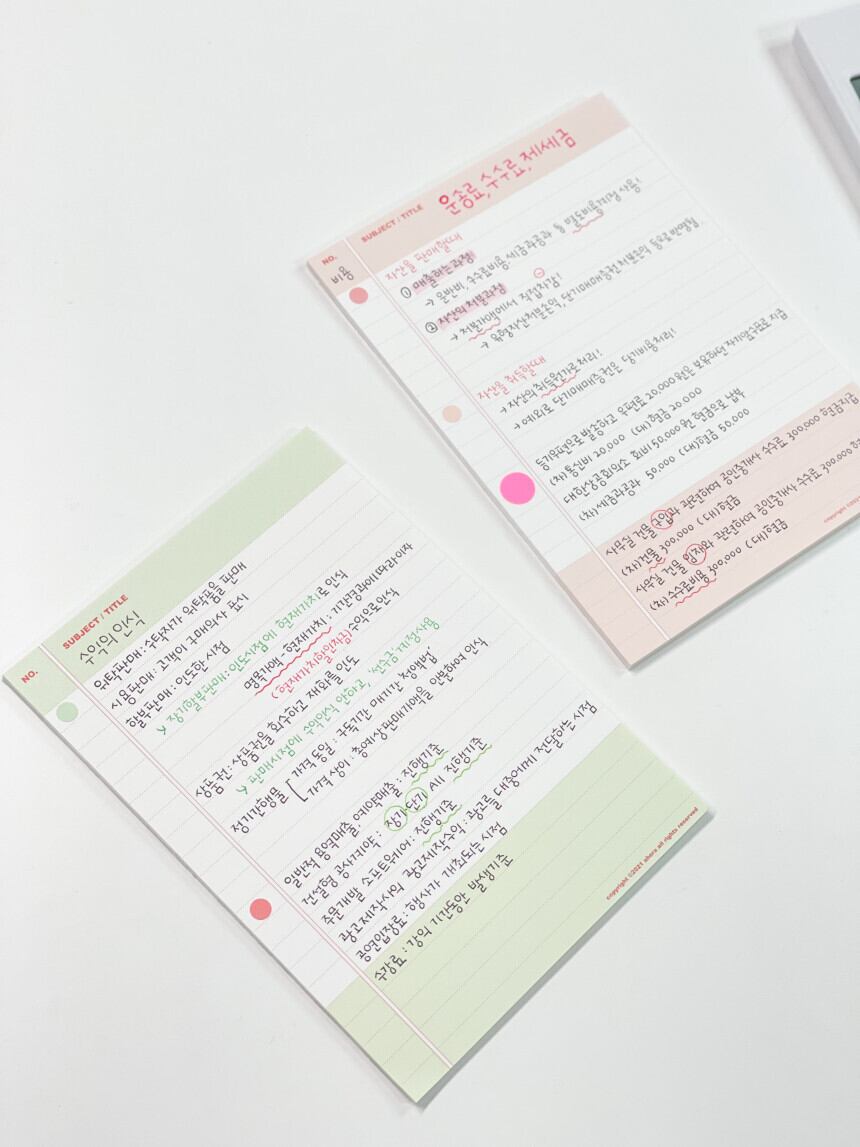 NO.
SUBJECT / TITLE
운송료, 수수료, 제세금
비용
자산을 판매할때
① 매출하는과정
→ 운반비, 수수료비용, 세금과공과 등 별도비용계정 사용!
② 자산의처분과정
→ 처분가액에서 직접차감!
→ 유형자산처분손익, 단기매매증권처분손익 등으로 반영됨.
자산을 취득할때
→ 자산의 취득원가로처리!
→ 예외로 단기매매증권은 당기비용처리!
등기우편으로 발송하고 우편료 20,000원은 보유하던 자기앞수표로 지급
(차)통신비 20,000 (대)현금 20,000
대한상공회의소 회비 50,000원 현금으로 납부
(차)세금과공과 50,000 (대)현금 50,000
사무실 건물 구입과 관련하여 공인중개사 수수료 300,000 현금지급
(차)건물 300,000 (대)현금
사무실 건물 임차와 관련하여 공인중개사 수수료 300,000
(차)수수료비용 300,000 (대)현금
copyright ©202
NO.
SUBJECT / TITLE
수익의 인식
위탁판매 : 수탁자가 위탁품을 판매
시용판매 : 고객이 구매의사 표시
할부판매 : 인도한 시점
↳ 장기할부판매 : 인도시점에 현재가치로 인식
명목가액 - 현재가치 : 기간경과에 따라 이자
(현재가치할인차금) 수익으로인식
상품권 : 상품권을 회수하고 재화를 인도
↳ 판매시점에 수익인식 안하고, '선수금' 계정사용
정기간행물
가격 동일 : 구독기간 매기간 '정액법'
가격 상이 : 총예상판매가액을 안분하여 인식
일반적 용역매출, 예약매출 : 진행기준
건설형 공사계약 : 장기 단기 All 진행기준
주문개발 소프트웨어 : 진행기준
광고제작사의 광고제작수익 : 광고를 대중에게 전달하는 시점
공연입장료 : 행사가 개최되는 시점
수강료 : 강의 기간동안 발생기준
copyright ©2021 ahora all rights reserved